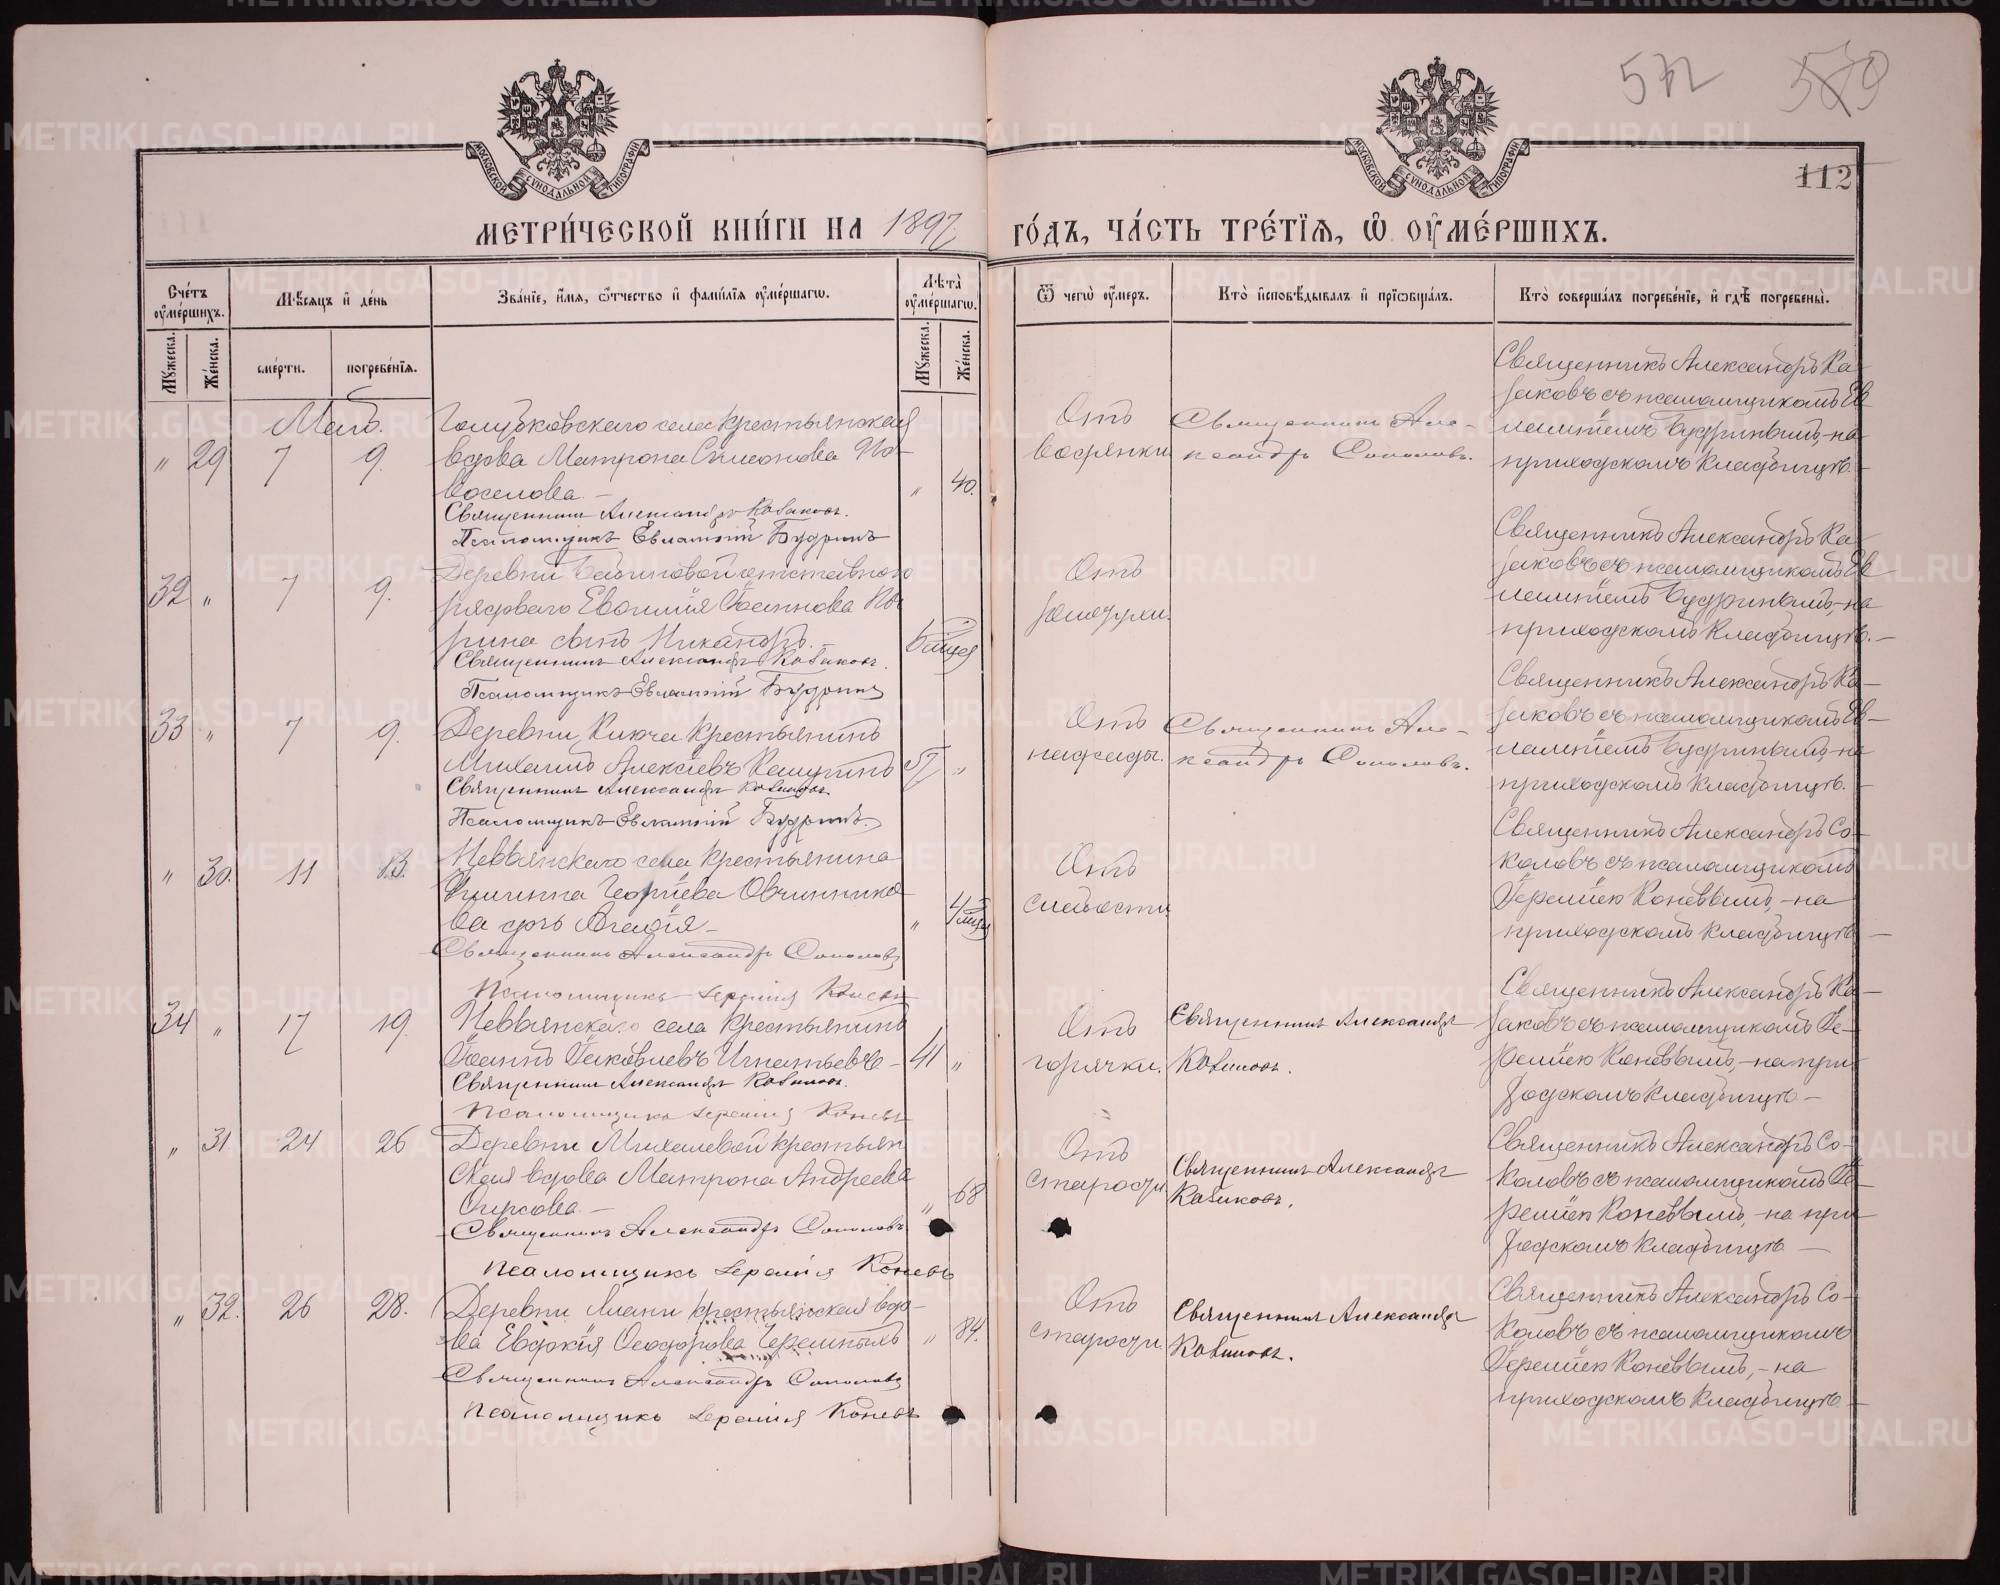 572 589
112
МОСКОВСКОЙ СѴНОДАЛЬНОЙ ТИПОГРАФІИ
МОСКОВСКОЙ СѴНОДАЛЬНОЙ ТИПОГРАФІИ
МЕТРИ́ЧЕСКОЙ КНИ́ГИ НА 1897 ГО́ДЪ, ЧА́СТЬ ТРЕ́ТІѦ, Ѽ ОУМЕ́РШИХЪ.
Сче́тъ оуме́ршихъ.
Мѣ́сѧцъ и҆ де́нь
Зва́нїе, и҆́мѧ, ѻ҆́тчество и҆ фами́лїѧ оуме́ршагѡ.
Лѣта̀ оуме́ршагѡ.
Ѿ чегѡ̀ оу́меръ.
Кто̀ и҆сповѣ́дывалъ и҆ прїѡбща́лъ.
Кто̀ соверша́лъ погребе́нїе, и҆ гдѣ̀ погребены̀.
Мꙋ́жеска.
Же́нска.
сме́рти.
погребе́нїѧ.
Мꙋ́жеска.
Же́нска.
Май.
" 29 7 9.
Голубковскаго села крестьянская
вдова Матрона Симонова Но-
воселова. –
" 40.
Священникъ Александръ Казаковъ.
Псаломщикъ Евлампій Будринъ
Отъ
водянки
Священникъ Але-
ксандръ Соколовъ.
Священникъ Александръ Ка-
заковъ съ псаломщикомъ Ев
лампіемъ Будринымъ, на
приходскомъ кладбищѣ. –
32 " 7 9.
Деревни отставного
рядового Іоаннова
рина сынъ Никандръ. –
Священникъ Александръ Казаковъ.
Псаломщикъ Евлампій Будринъ
Отъ
Священникъ Александръ Ка-
заковъ съ псаломщикомъ Ев
лампіемъ Будринымъ, на
приходскомъ кладбищѣ. –
33 " 7 9.
Деревни Ключи крестьянинъ
Михаилъ Алексѣевъ
57 "
Священникъ Александръ Казаковъ.
Псаломщикъ Евлампій Будринъ.
Отъ
Священникъ Але-
ксандръ Соколовъ.
Священникъ Александръ Ка-
заковъ съ псаломщикомъ Ев-
лампіемъ Будринымъ, на
приходскомъ кладбищѣ. –
" 30. 11 13.
Невьянскаго села крестьянина
Филиппа Георгіева Овчиннико-
ва дочь
Священникъ Александръ Соколовъ
Псаломщикъ Іеремія Коневъ
Отъ
слабости
Священникъ Александръ Со-
коловъ съ псаломщикомъ
Іереміею Коневымъ, – на
приходскомъ кладбищѣ –
34 " 17 19.
Невьянскаго села крестьянинъ
Іоаннъ Іаковлевъ Игнатьевъ –
41 "
Священникъ Александръ Казаковъ.
Псаломщикъ Іеремія Коневъ
Отъ
горячки.
Священникъ Александръ
Казаковъ.
Священникъ Александръ Ка-
заковъ съ псаломщикомъ Іе-
реміею Коневымъ, – на при
ходскомъ кладбищѣ –
" 31. 24 26
Деревни Михалевой крестьян
ская вдова Матрона Андреева
" 68
Священникъ Александръ Соколовъ
Псаломщикъ Іеремія Коневъ
Отъ
старости
Священникъ Александръ
Казаковъ.
Священникъ Александръ Со-
коловъ съ псаломщикомъ Іе-
реміею Коневымъ, – на при
ходскомъ кладбищѣ –
" 32. 26 28.
Деревни крестьянская вдо-
ва Евдокія Ѳеодорова Черемныхъ
" 84.
Священникъ Александръ Соколовъ
Псаломщикъ Іеремія Коневъ
Отъ
старости
Священникъ Александръ
Казаковъ.
Священникъ Александръ Со-
коловъ съ псаломщикомъ
Іереміею Коневымъ, – на
приходскомъ кладбищѣ. –
METRIKI.GASO-URAL.RU